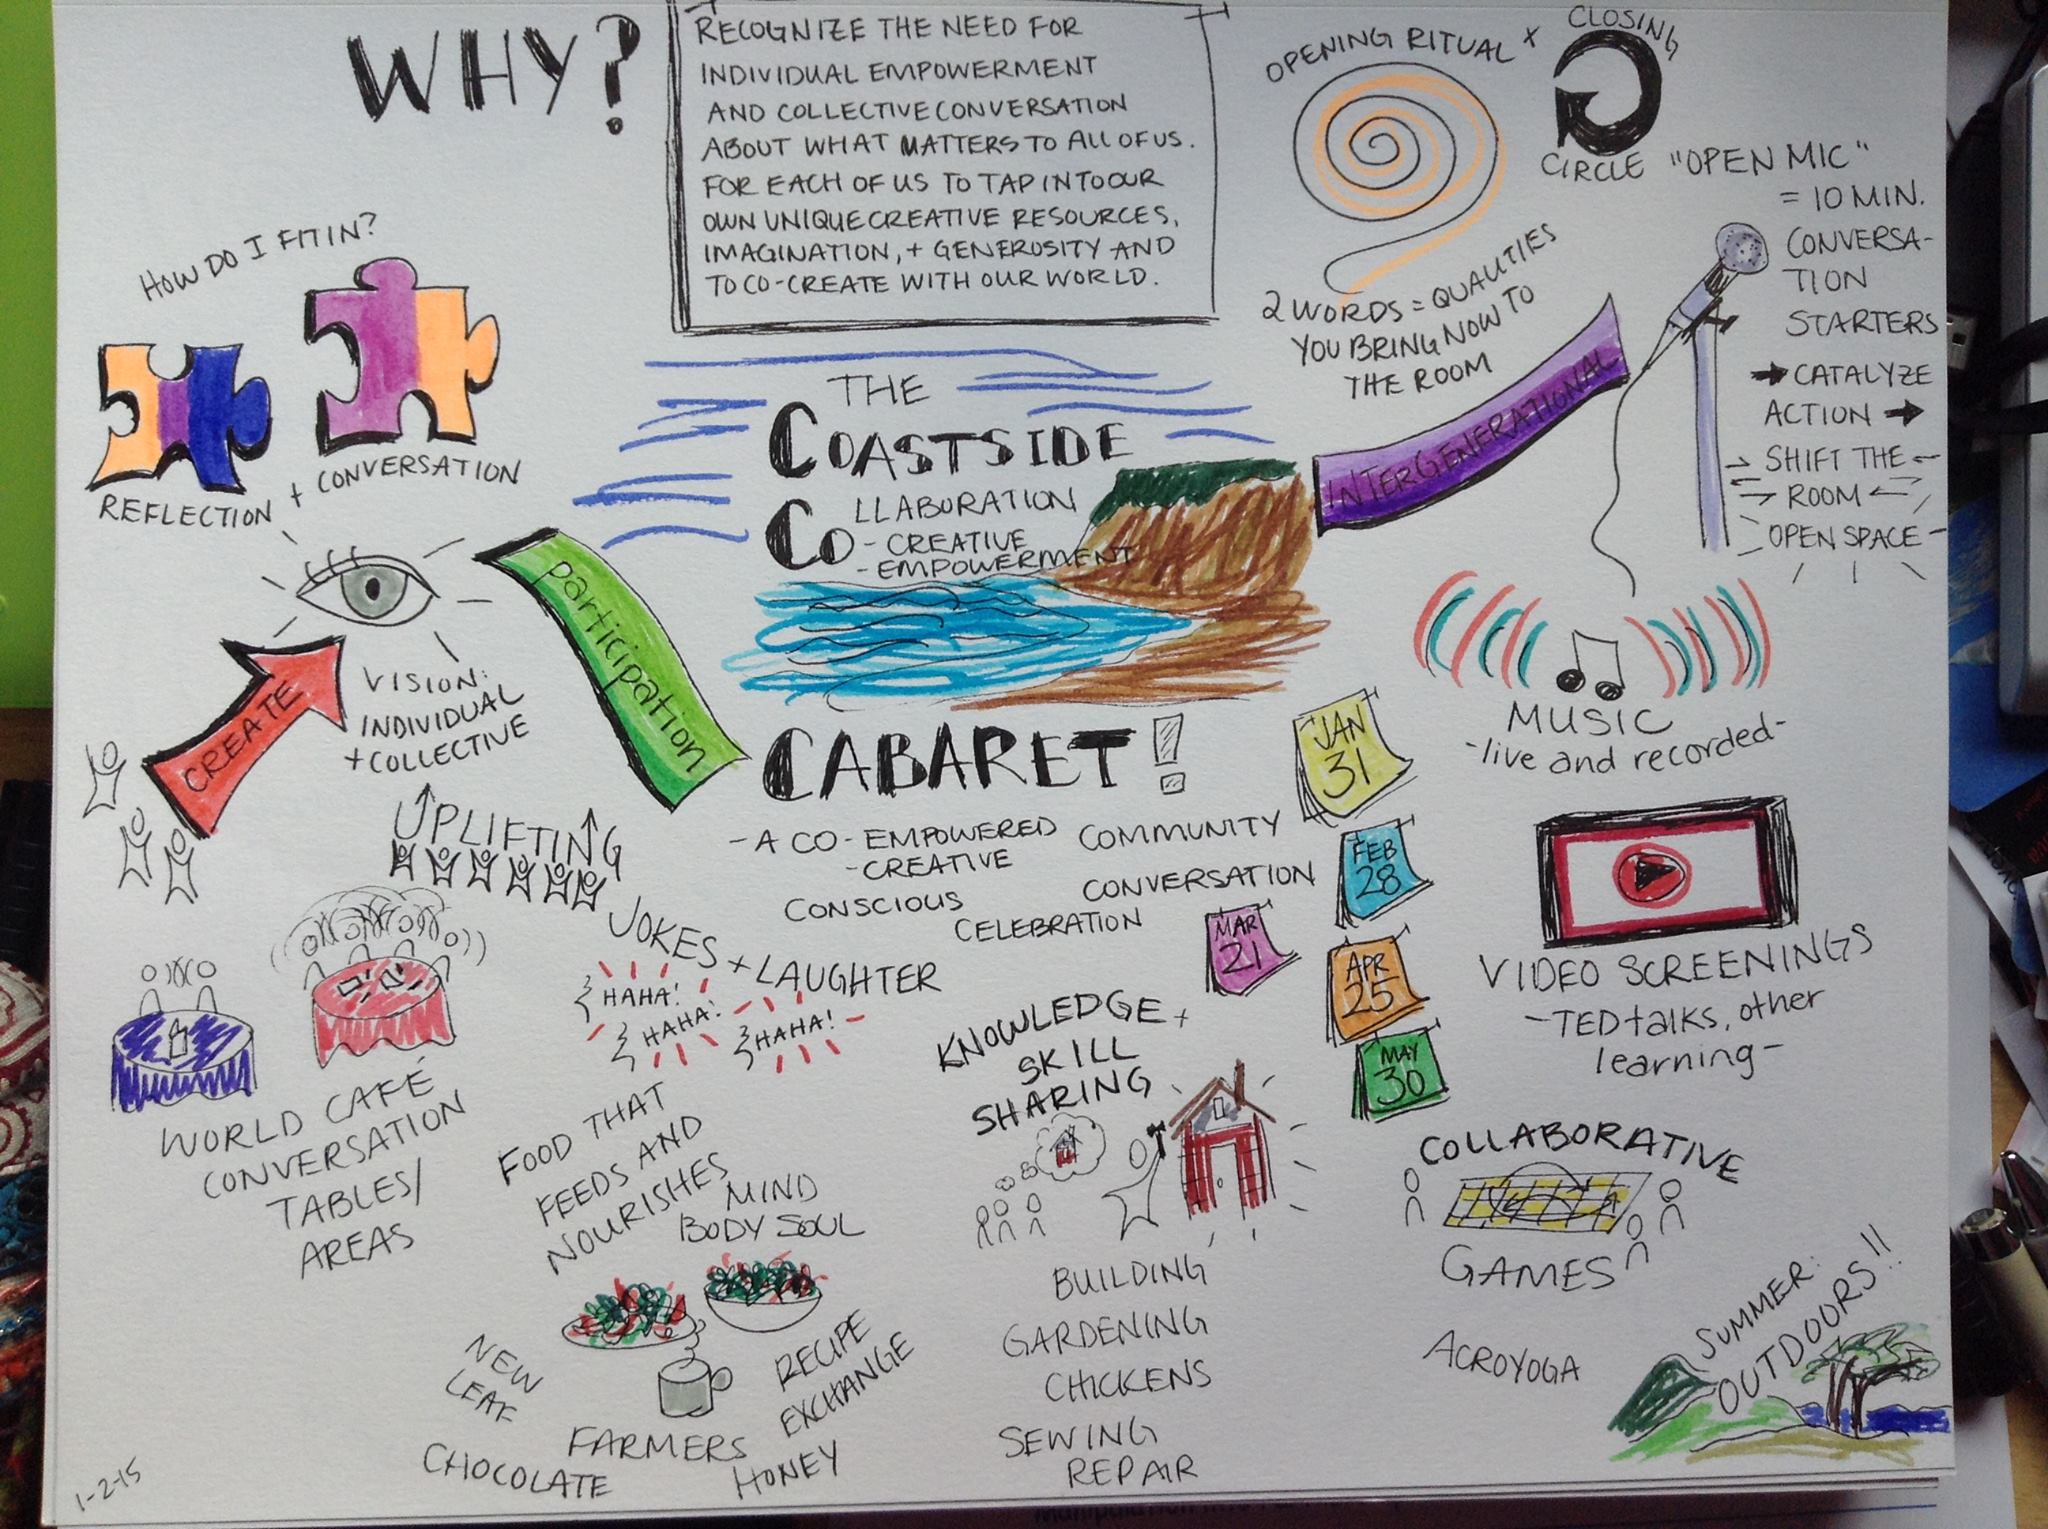 WHY?
RECOGNIZE THE NEED FOR
INDIVIDUAL EMPOWERMENT
AND COLLECTIVE CONVERSATION
ABOUT WHAT MATTERS TO ALL OF US.
FOR EACH OF US TO TAP INTO OUR
OWN UNIQUE CREATIVE RESOURCES,
IMAGINATION, + GENEROSITY AND
TO CO-CREATE WITH OUR WORLD.
OPENING RITUAL
X
CLOSING
CIRCLE
2 WORDS = QUALITIES
YOU BRING NOW TO
THE ROOM
"OPEN MIC"
= 10 MIN.
CONVERSA-
TION
STARTERS
→ CATALYZE
ACTION →
SHIFT THE
ROOM
OPEN SPACE
INTERGENERATIONAL
HOW DO I FIT IN?
REFLECTION + CONVERSATION
VISION:
INDIVIDUAL
+ COLLECTIVE
CREATE
participation
THE
COASTSIDE
COLLABORATION
CO-CREATIVE
-EMPOWERMENT
CABARET!
- A CO-EMPOWERED
-CREATIVE
CONSCIOUS
COMMUNITY
CONVERSATION
CELEBRATION
JAN
31
FEB
28
MAR
21
APR
25
MAY
30
MUSIC
-live and recorded-
VIDEO SCREENINGS
-TED talks, other
learning-
COLLABORATIVE
GAMES
ACROYOGA
SUMMER:
OUTDOORS!!
UPLIFTING
JOKES + LAUGHTER
HAHA!
HAHA!
HAHA!
WORLD CAFÉ
CONVERSATION
TABLES/
AREAS
FOOD THAT
FEEDS AND
NOURISHES
MIND
BODY SOUL
NEW
LEAF
CHOCOLATE
FARMERS
HONEY
RECIPE
EXCHANGE
KNOWLEDGE +
SKILL
SHARING
BUILDING
GARDENING
CHICKENS
SEWING
REPAIR
1-2-15